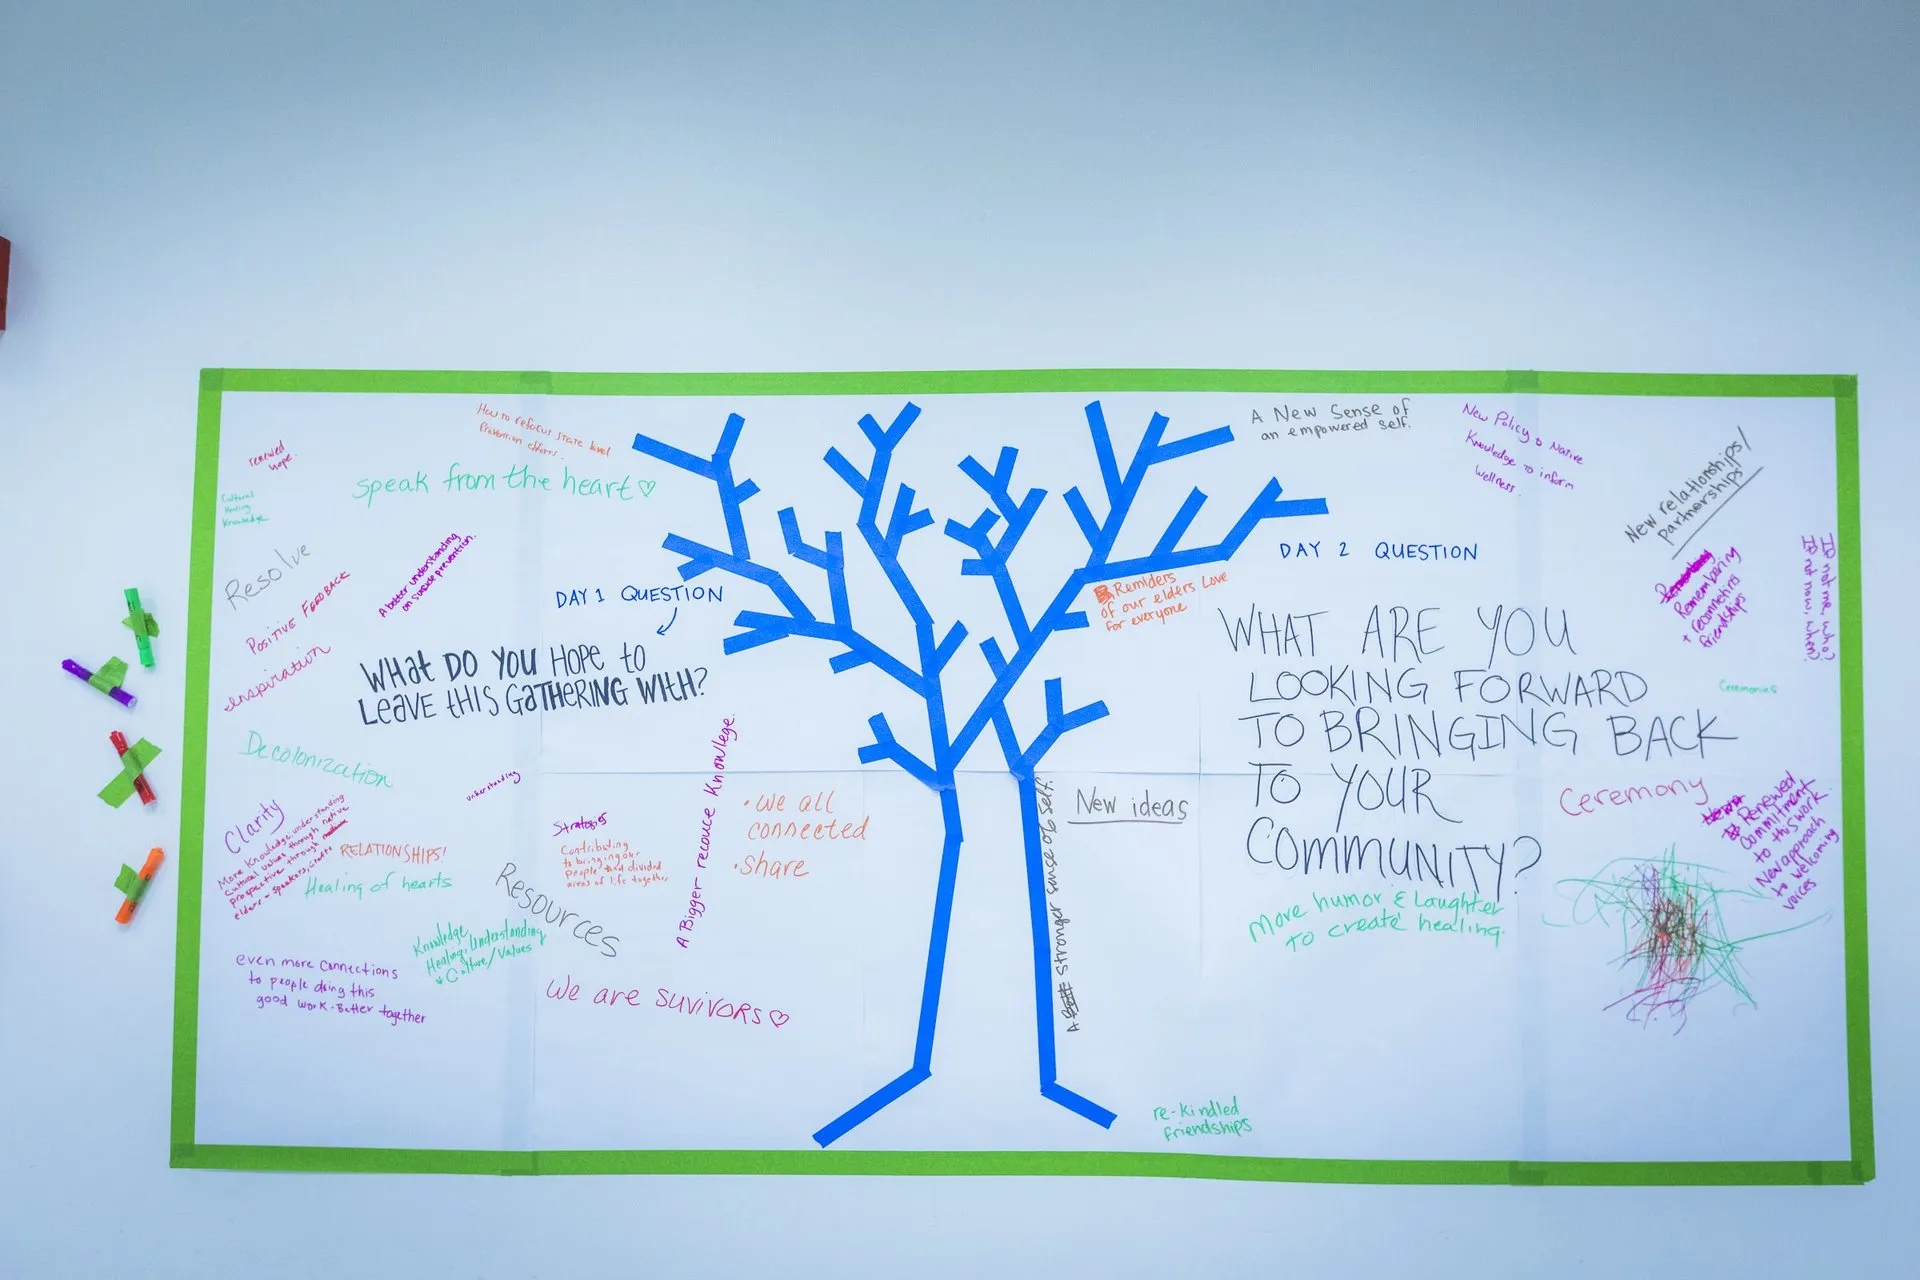 renewed
hope.
Cultural
Healing
Knowledge
How to refocus state level
Prevention efforts.
speak from the heart ♡
Resolve
A better understanding
on suicide prevention.
POSITIVE FEEDBACK
inspiration
DAY 1 QUESTION
WHAT DO YOU HOPE to
LEAVE tHIS GatHERING WITH?
Decolonization
understanding
Clarity
More knowledge, understanding
cultural values through native
prospective through
elders - speakers, crafts
RELATIONSHIPS!
Healing of hearts
Strategies
Contributing
to bringing our
people and divided
areas of life together
Resources
Knowledge,
Healing, Understanding
Culture/Values
A Bigger recouce Knowlege.
• We all
connected
• share
even more connections
to people doing this
good work - Better together
We are SUVIVORS ♡
A New Sense of
an empowered self.
New Policy & Native
Knowledge to inform
Wellness.
New relationships/
partnerships
DAY 2 QUESTION
Remiders
of our elders Love
for everyone
Remembering
+ reconnecting
friendships
If not me, who?
If not now, when?
WHAT ARE YOU
LOOKING FORWARD
TO BRINGING BACK
TO YOUR
COMMUNITY?
Ceremonies
New ideas
A stronger sense of self.
Ceremony
Renewed
Commitment
to this work
New approach
to welcoming
voices
More humor & Laughter
to create healing.
re-kindled
friendships